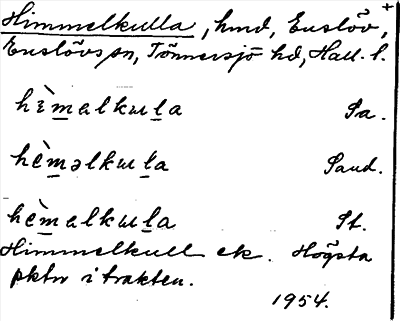 Himmelkulla, hmd, Enslöv, +
Enslövs sn, Tönnersjö hd, Hall. l.
hèmalkula Sa.
hèməlkula Sand.
hèmalkula St.
Himmelkull ek. Högsta
pktn i trakten.
1954.